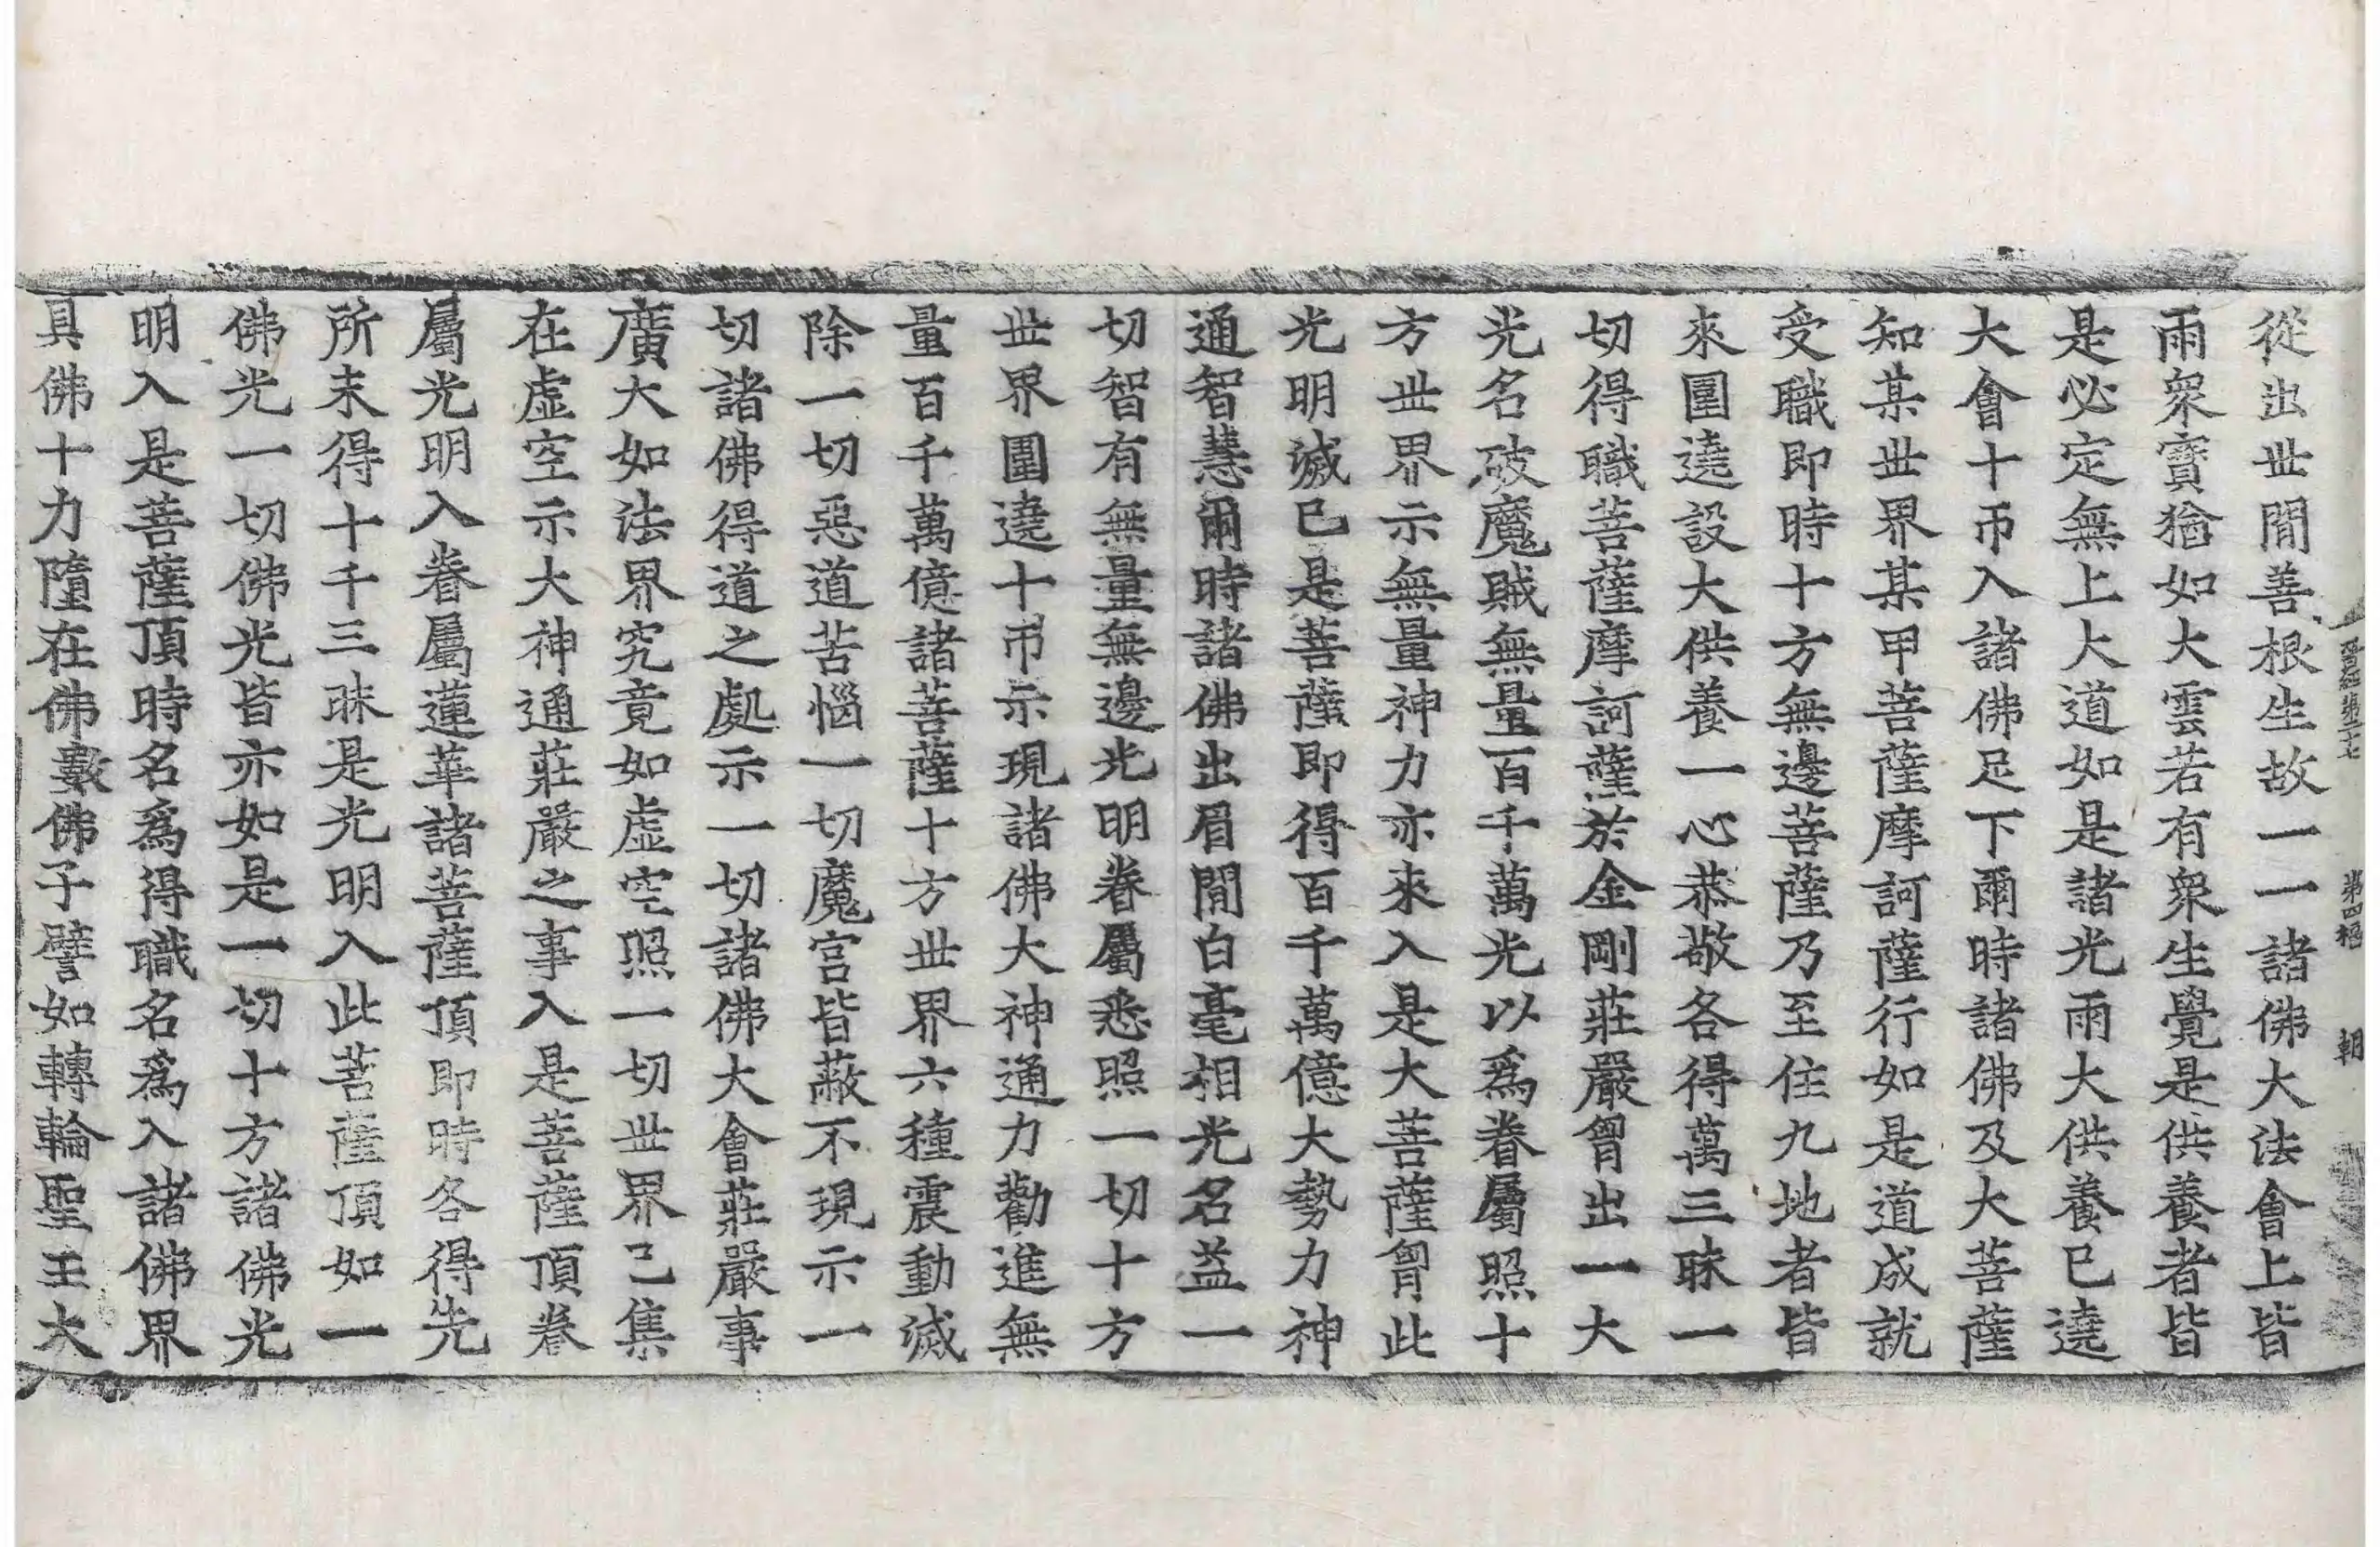 晋経第二十七 第四張 朝
從出世間善根生故一一諸佛大法會上皆
雨衆寶猶如大雲若有衆生覺是供養者皆
是必定無上大道如是諸光雨大供養已遶
大會十帀入諸佛足下爾時諸佛及大菩薩
知某世界某甲菩薩摩訶薩行如是道成就
受職即時十方無邊菩薩乃至住九地者皆
來圍遶設大供養一心恭敬各得萬三昧一
切得職菩薩摩訶薩於金剛莊嚴胷出一大
光名破魔賊無量百千萬光以爲眷屬照十
方世界示無量神力亦來入是大菩薩胷此
光明滅已是菩薩即得百千萬億大勢力神
通智慧爾時諸佛出眉間白毫相光名益一
切智有無量無邊光明眷屬悉照一切十方
世界圍遶十帀示現諸佛大神通力勸進無
量百千萬億諸菩薩十方世界六種震動滅
除一切惡道苦惱一切魔宮皆蔽不現示一
切諸佛得道之處示一切諸佛大會莊嚴事
廣大如法界究竟如虛空照一切世界已集
在虛空示大神通莊嚴之事入是菩薩頂眷
屬光明入眷屬蓮華諸菩薩頂即時各得先
所未得十千三昧是光明入此菩薩頂如一
佛光一切佛光皆亦如是一切十方諸佛光
明入是菩薩頂時名爲得職名爲入諸佛界
具佛十力墮在佛數佛子譬如轉輪聖王太